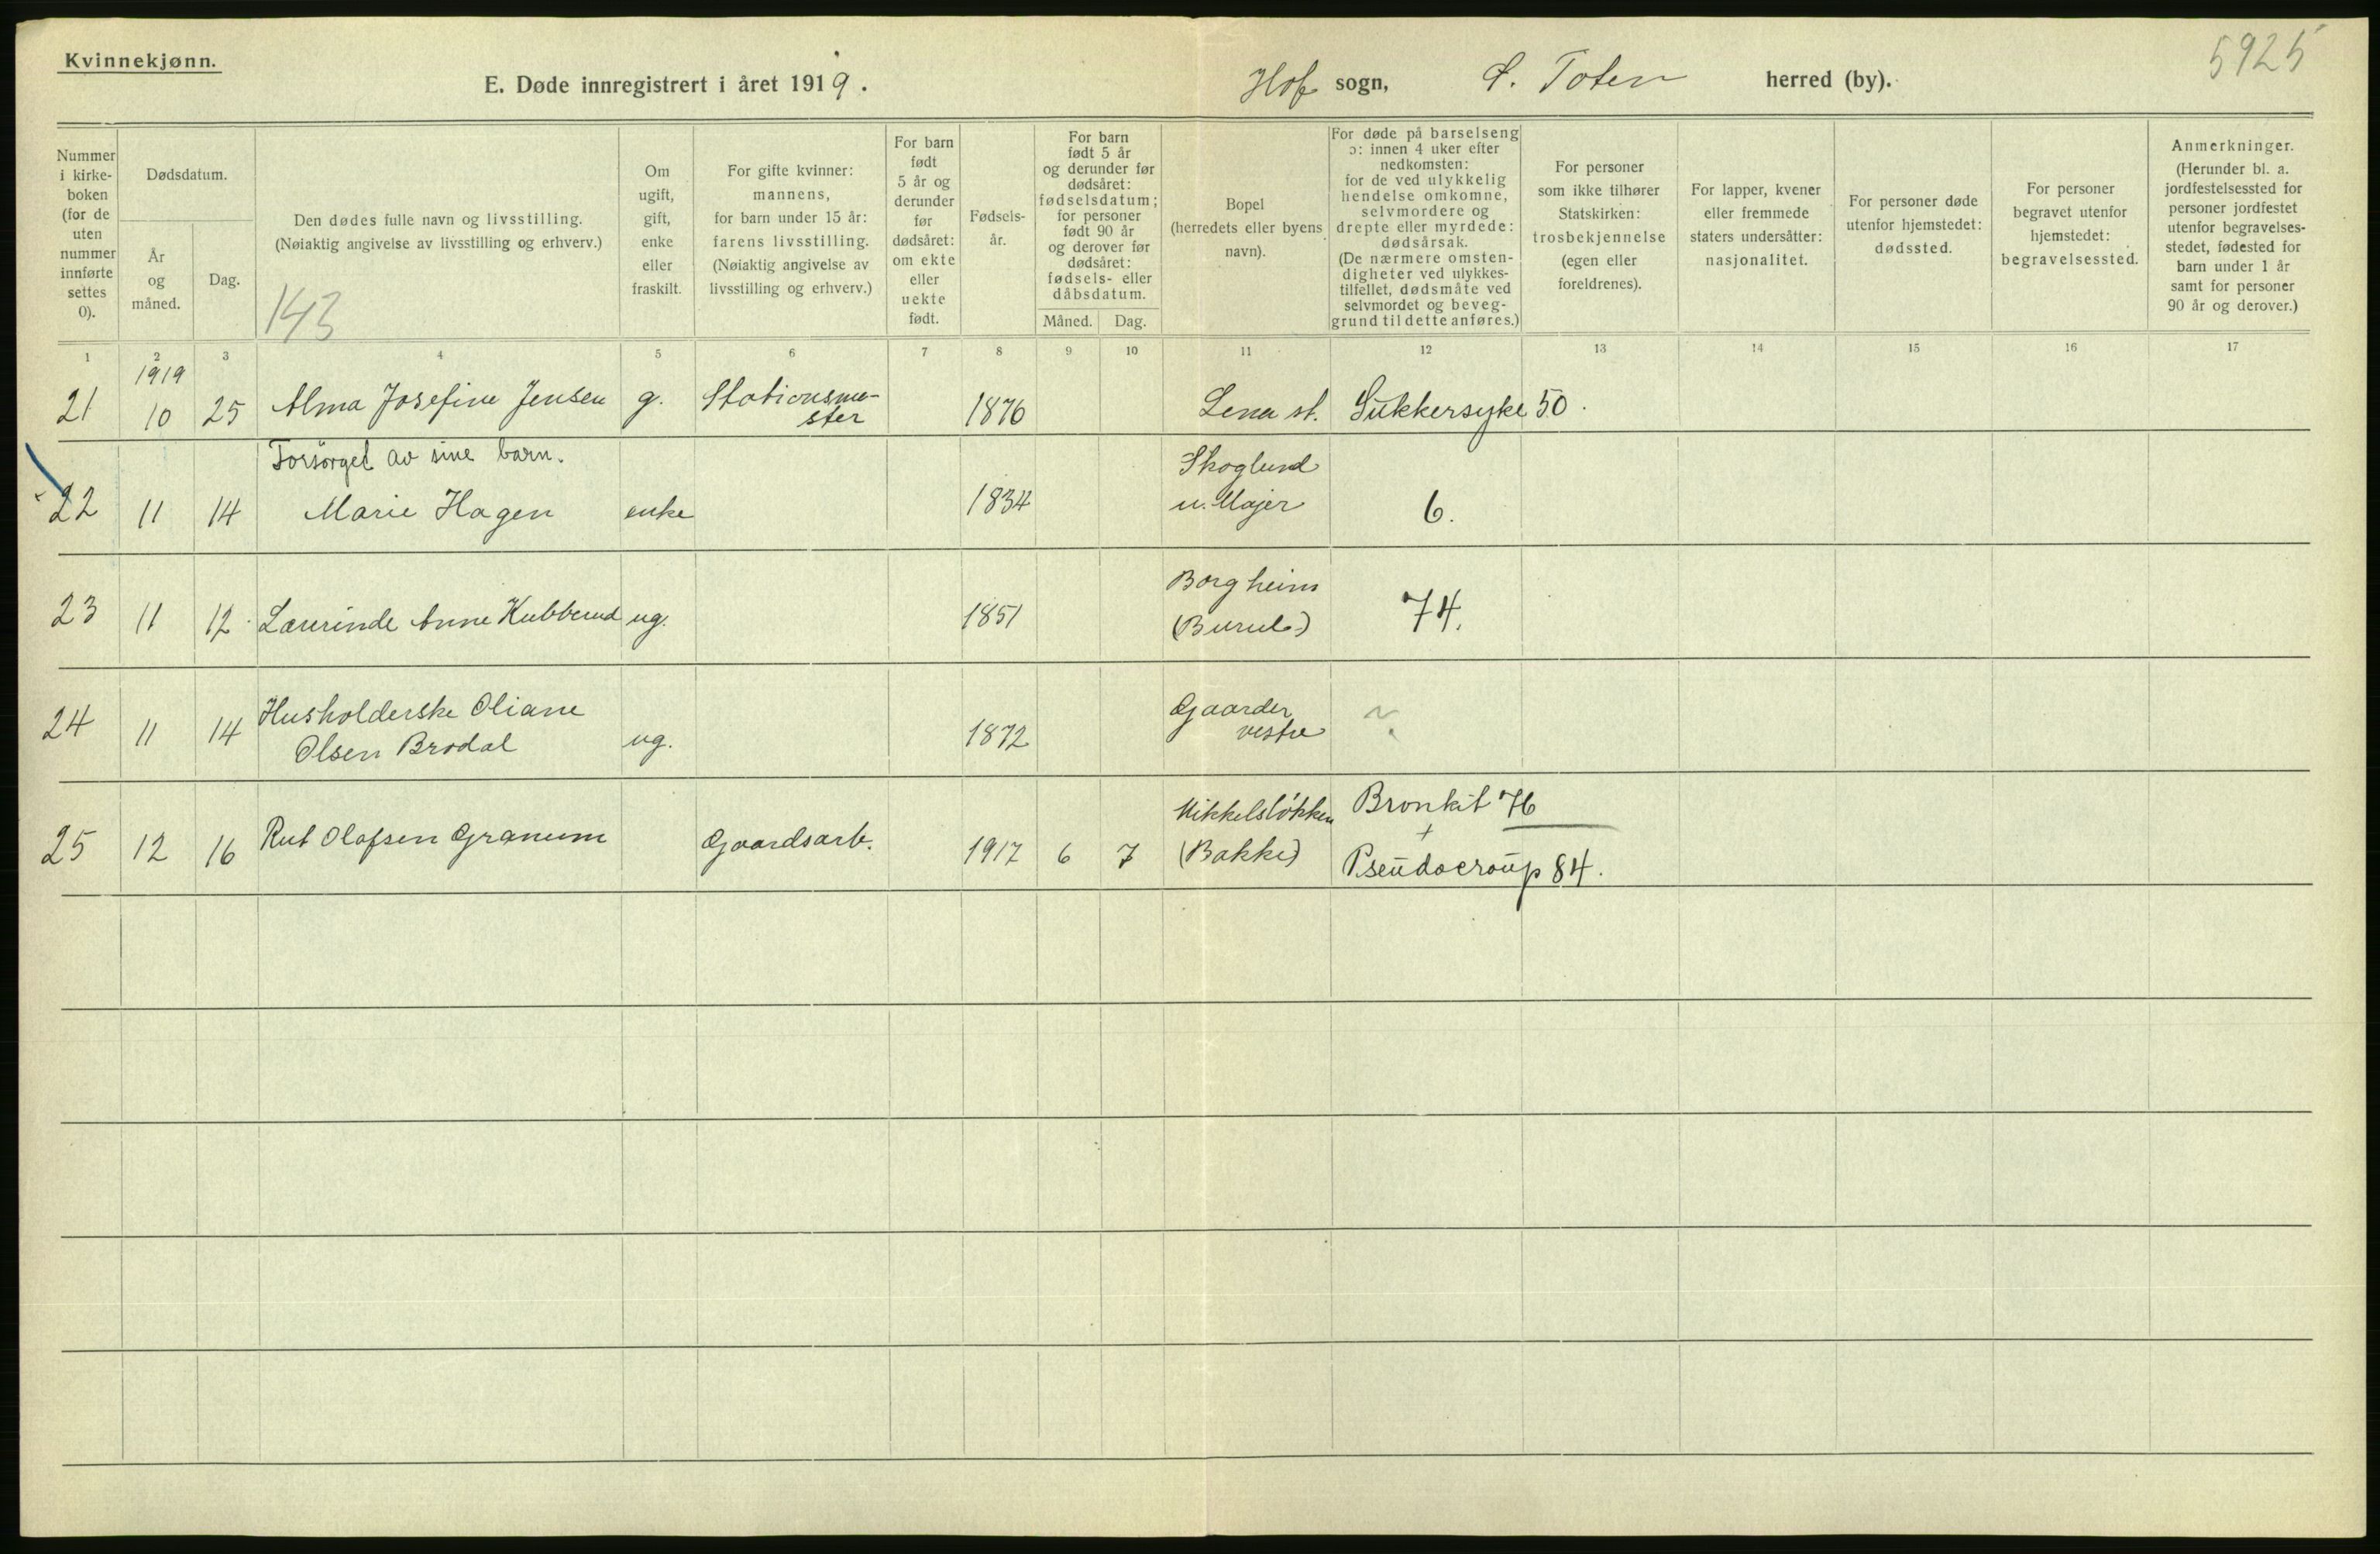 Kvinnekjønn.
5925
E. Døde innregistrert i året 1919.
Hof sogn, Ø. Toten herred (by).
Nummer i kirke-boken (for de uten nummer innførte settes 0).
Dødsdatum.
År og måned.
Dag.
Den dødes fulle navn og livsstilling.
(Nøiaktig angivelse av livsstilling og erhverv.)
143
Om ugift, gift, enke eller fraskilt.
For gifte kvinner: mannens, for barn under 15 år: farens livsstilling. (Nøiaktig angivelse av livsstilling og erhverv.)
For barn født 5 år og derunder før dødsåret: om ekte eller uekte født.
Fødsels-år.
For barn født 5 år og derunder før dødsåret: fødselsdatum; for personer født 90 år og derover før dødsåret: fødsels- eller dåbsdatum.
Måned.
Dag.
Bopel (herredets eller byens navn).
For døde på barselseng ɔ: innen 4 uker efter nedkomsten: for de ved ulykkelig hendelse omkomne, selvmordere og drepte eller myrdede: dødsårsak. (De nærmere omsten-digheter ved ulykkes-tilfellet, dødsmåte ved selvmordet og beveg-grund til dette anføres.)
For personer som ikke tilhører Statskirken: trosbekjennelse (egen eller foreldrenes).
For lapper, kvener eller fremmede staters undersåtter: nasjonalitet.
For personer døde utenfor hjemstedet: dødssted.
For personer begravet utenfor hjemstedet: begravelsessted.
Anmerkninger. (Herunder bl. a. jordfestelsessted for personer jordfestet utenfor begravelses-stedet, fødested for barn under 1 år samt for personer 90 år og derover.)
1 2 3 4 5 6 7 8 9 10 11 12 13 14 15 16 17
1919
21 10 25 Alma Josefine Jensen g. Stationsme-ster 1876 Lena st. Sukkersyke 50.
Forsørget av sine barn.
22 11 14 Marie Hagen enke 1834 Skoglund u. Majer 6.
23 11 12 Lærerinde Anne Kubberud ug. 1851 Borgheim (Burul) 74.
24 11 14 Husholderske Oliane
Olsen Brodal ug. 1872 Gaarder vestre ~
25 12 16 Rut Olafsen Granum Gaardsarb. 1917 6 7 Mikkelsløkken (Bakke) Bronkit 76
+
Pseudocroup 84.